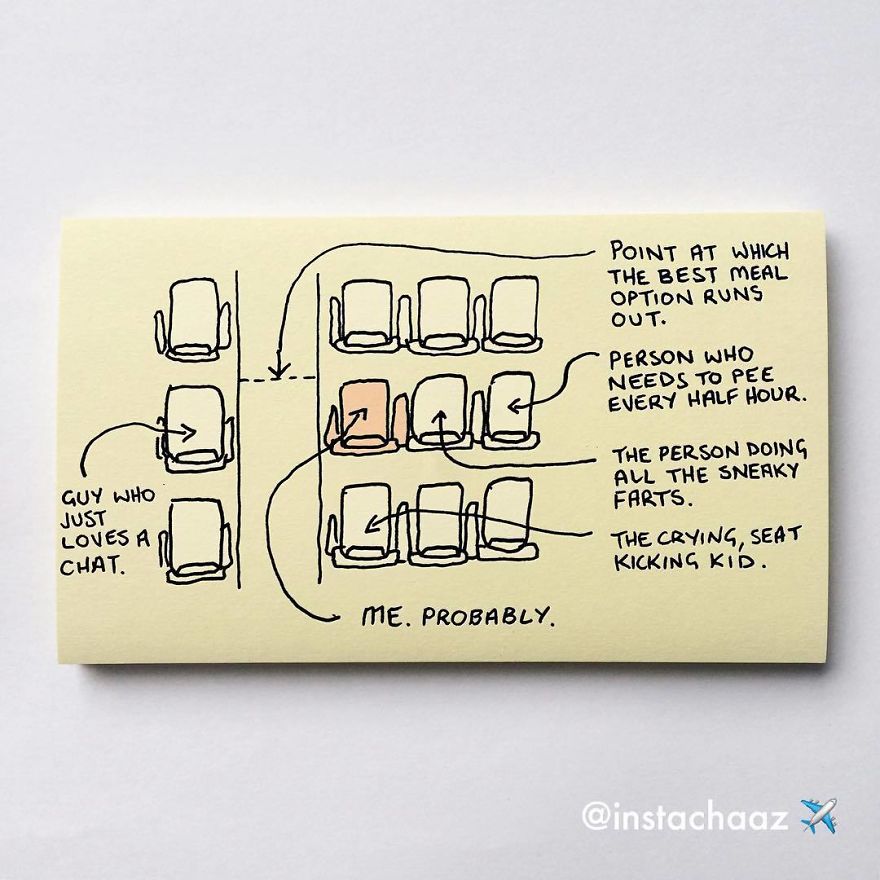 POINT AT WHICH
THE BEST MEAL
OPTION RUNS
OUT.
PERSON WHO
NEEDS TO PEE
EVERY HALF HOUR.
THE PERSON DOING
ALL THE SNEAKY
FARTS.
THE CRYING, SEAT
KICKING KID.
GUY WHO
JUST
LOVES A
CHAT.
ME. PROBABLY.
@instachaaz ✈️